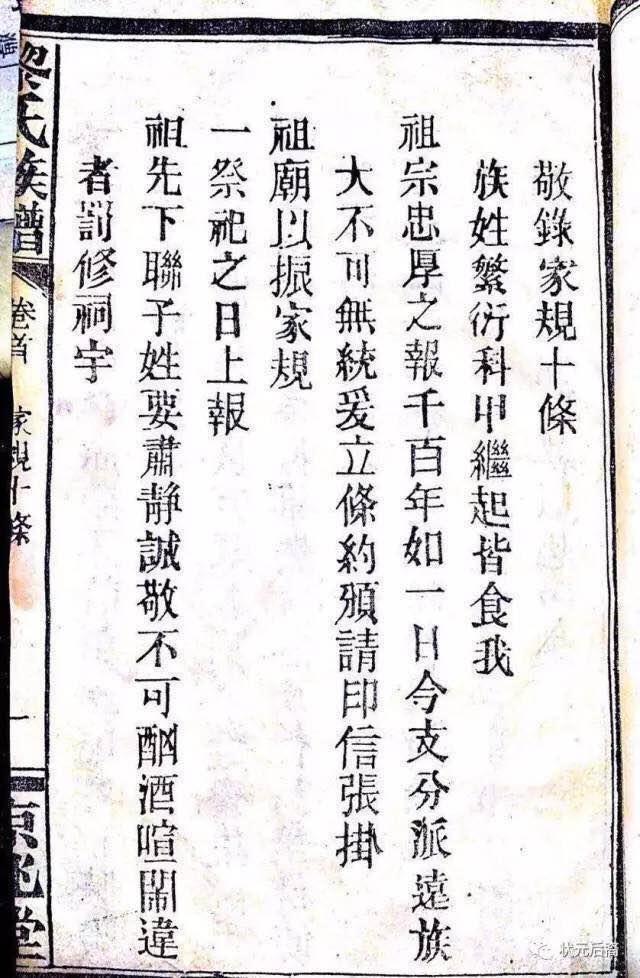 敬錄家規十條
族姓繁衍科甲繼起皆食我
祖宗忠厚之報千百年如一日今支分派遠族
大不可無統爰立條約頒請印信張掛
祖廟以振家規
一祭祀之日上報
祖先下聯子姓要肅靜誠敬不可酗酒喧鬧違
者罰修祠宇
黎氏族譜
卷首
家規十條
一
京兆堂
状元后裔